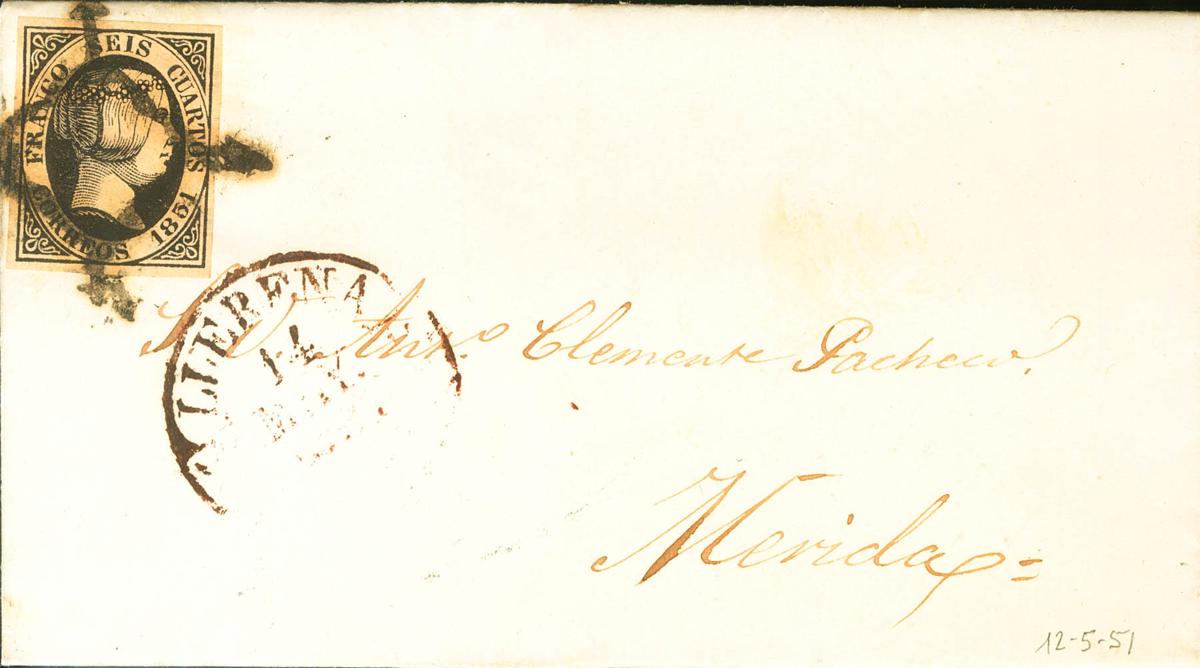 FRANCO SEIS CUARTOS
CORREOS 1851
LLERENA
14
S. D. Antº. Clemente Pacheco.
Merida=
12-5-51